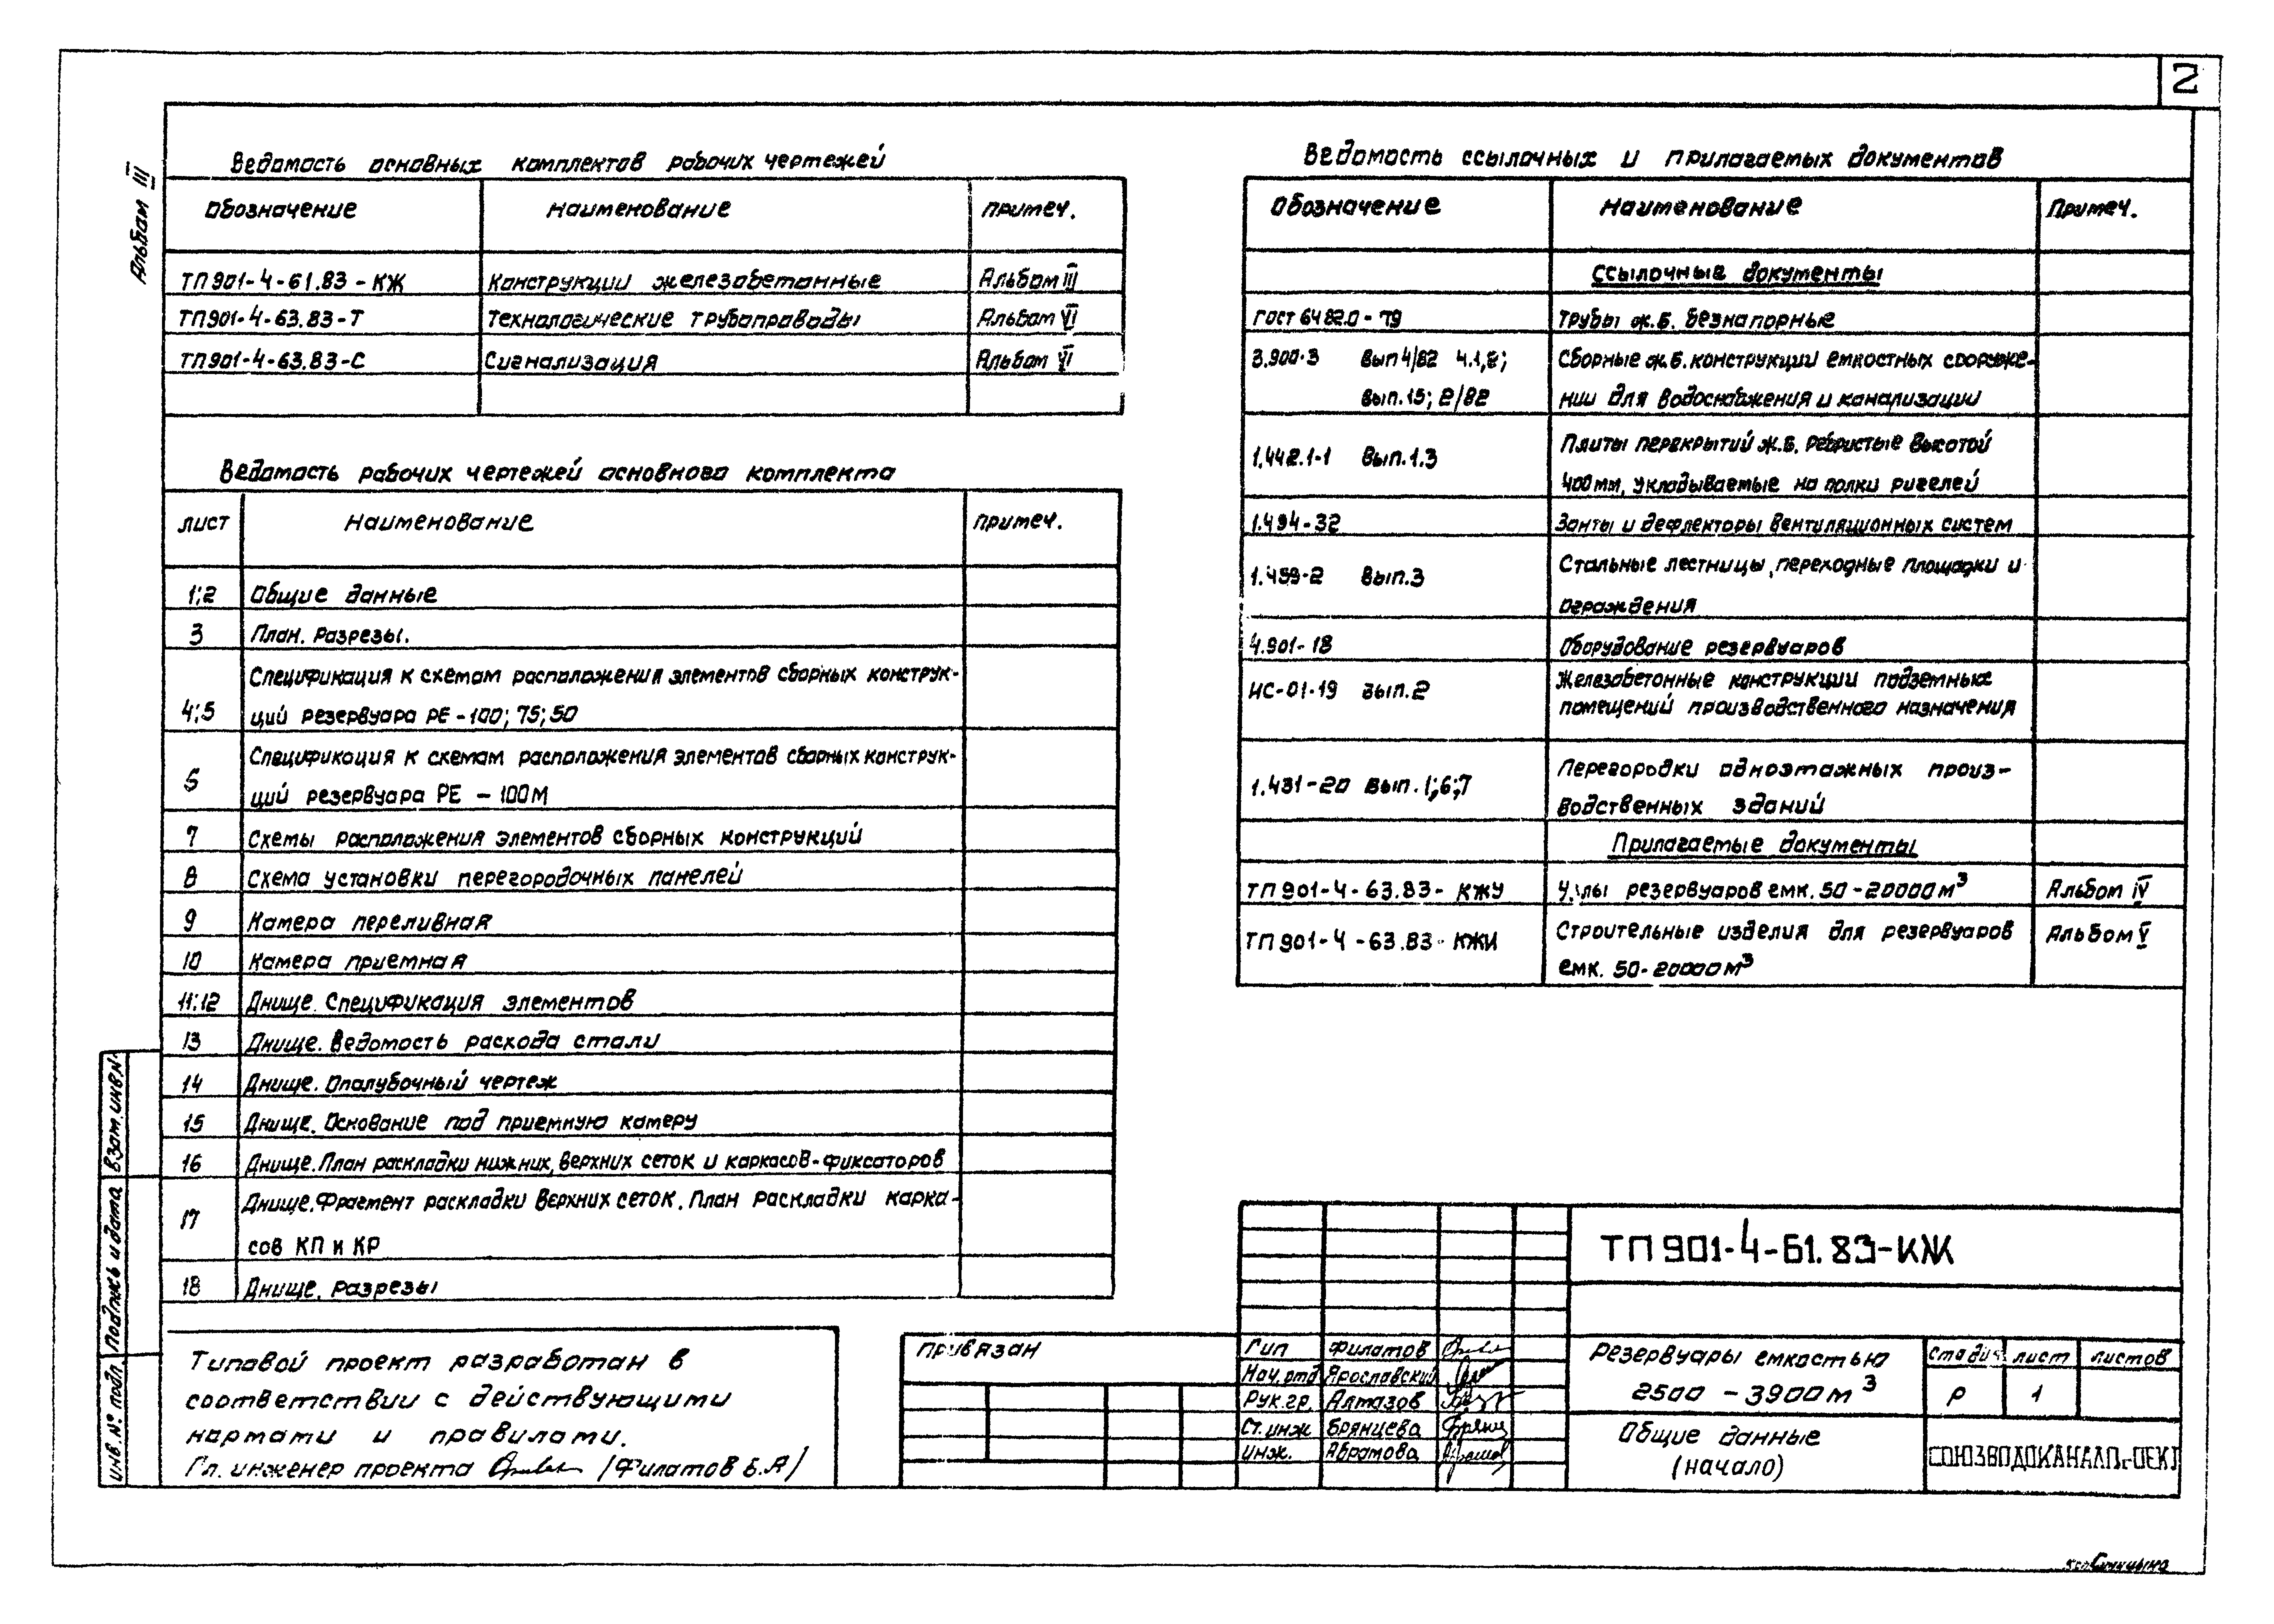 2
Альбом III
Ведомость основных комплектов рабочих чертежей
Обозначение Наименование Примеч.
ТП901-4-61.83-КЖ Конструкции железобетонные Альбом III
ТП901-4-63.83-Т Технологические трубопроводы Альбом VI
ТП901-4-63.83-С Сигнализация Альбом VI
Ведомость рабочих чертежей основного комплекта
Лист Наименование Примеч.
1;2 Общие данные
3 План. Разрезы.
Спецификация к схемам расположения элементов сборных конструк-
4;5 ций резервуара РЕ-100; 75; 50
Спецификация к схемам расположения элементов сборных конструк-
6 ций резервуара РЕ - 100М
7 Схемы расположения элементов сборных конструкций
8 Схема установки перегородочных панелей
9 Камера переливная
10 Камера приемная
11;12 Днище. Спецификация элементов
13 Днище. Ведомость расхода стали
14 Днище. Опалубочный чертеж
15 Днище. Основание под приемную камеру
16 Днище. План раскладки нижних, верхних сеток и каркасов-фиксаторов
Днище. Фрагмент раскладки верхних сеток. План раскладки карка-
17 сов КП и КР
18 Днище. Разрезы
Ведомость ссылочных и прилагаемых документов
Обозначение Наименование Примеч.
Ссылочные документы
ГОСТ 6482.0-79 Трубы ж.б. безнапорные
3.900-3 Вып 4/82 ч.1,2; Сборные ж.б. конструкции емкостных сооруже-
Вып.15; 2/82 нии для водоснабжения и канализации
Плиты перекрытий ж.б. ребристые высотой
1.442.1-1 Вып.1.3 400мм, укладываемые на полки ригелей
1.494-32 Зонты и дефлекторы вентиляционных систем
1.459-2 Вып.3 Стальные лестницы, переходные площадки и
ограждения
4.901-18 Оборудование резервуаров
ИС-01-19 Вып.2 Железобетонные конструкции подземных
помещений производственного назначения
Перегородки одноэтажных произ-
1.431-20 Вып.1;6;7 водственных зданий
Прилагаемые документы
ТП901-4-63.83-КЖУ Узлы резервуаров емк. 50-20000м³ Альбом IV
ТП901-4-63.83-КЖИ Строительные изделия для резервуаров Альбом V
емк. 50-20000м³
Типовой проект разработан в
соответствии с действующими
нормами и правилами.
Гл. инженер проекта (Филатов Б.А)
Привязан
ТП901-4-61.83-КЖ
Гип Филатов
Нач.отд Ярославский
Рук.гр. Алмазов
Ст.инж Брянцева
Инж. Абрамова
Резервуары емкостью
2500 - 3900 м³
Стадия Лист Листов
Р 1
Общие данные
(начало)
СОЮЗВОДОКАНАЛПРОЕКТ
Инв.№ подл. Подпись и дата Взам.инв.№